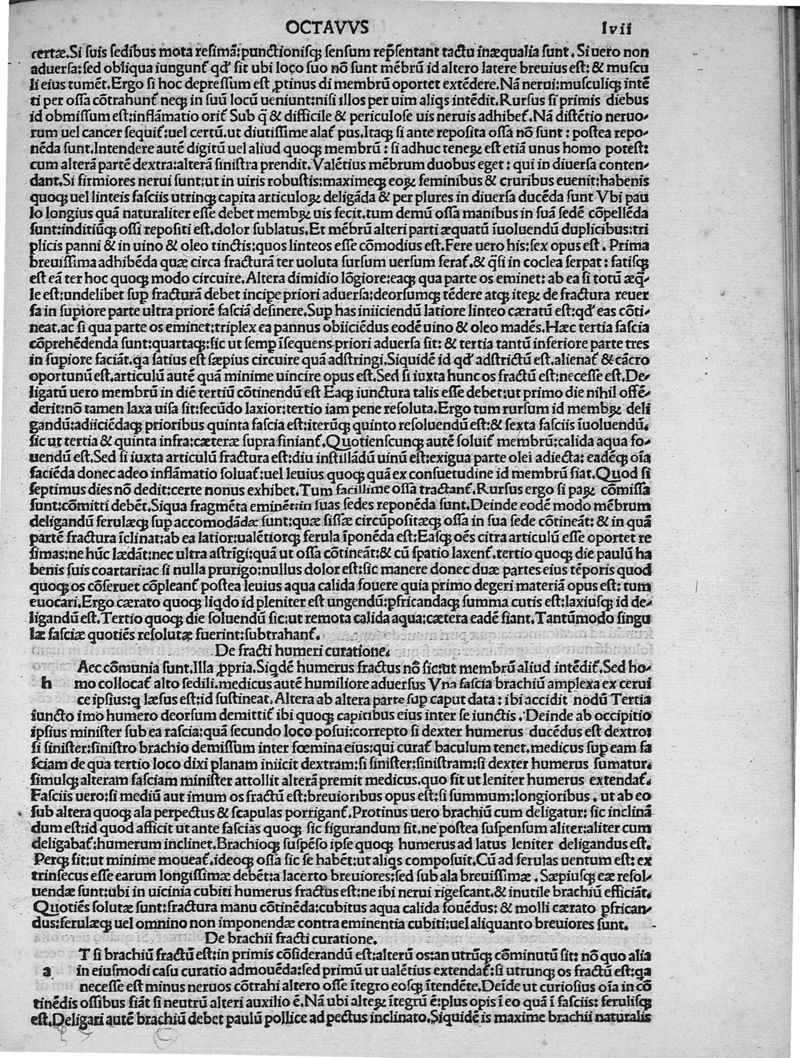 OCTAVVS lvii
certæ. Si suis sedibus mota resimã: punctionisq; sensum rep̃sentant tactu inæqualia sunt. Si uero non
aduersa: sed obliqua iungunt̃ qđ sit ubi loco suo nõ sunt mẽbrũ id altero latere breuius est: & muscu
li eius tumẽt. Ergo si hoc depressum est ꝓtinus di membrũ oportet extẽdere. Nã nerui: musculiq; intẽ
ti per ossa cõtrahunt̃ neq; in suũ locũ ueniunt: nisi illos per uim aliq̃s intẽdit. Rursus si primis diebus
id obmissum est: inflãmatio orit̃ Sub q̃ & difficile & periculose uis neruis adhibet̃. Nã distẽtio neruo-
rum uel cancer sequit̃: uel certũ. ut diutissime alat̃ pus. Itaq; si ante reposita ossa nõ sunt: postea repo-
nẽda sunt. Intendere autẽ digitũ uel aliud quoq; membrũ: si adhuc tenerꝝ est etiã unus homo potest:
cum alterã parte dextra: alterã sinistra prendit. Valẽtius mẽbrum duobus eget: qui in diuersa conten-
dant. Si firmiores nerui sunt: ut in uiris robustis: maximeq; eoꝝ feminibus & cruribus euenit: habenis
quoq; uel linteis fasciis utrinq; capita articuloꝝ deligãda & per plures in diuersa ducẽda sunt Vbi pau
lo longius quã naturaliter esse debet membrꝝ uis fecit. tum demũ ossa manibus in suã sedẽ cõpellẽda
sunt: inditiũq; ossi repositi est. dolor sublatus. Et mẽbrũ alteri parti æquatũ iuoluendũ duplicibus: tri
plicis panni & in uino & oleo tinctis: quos linteos esse cõmodius est. Fere uero his: sex opus est. Prima
breuissima adhibẽda quæ circa fracturã ter uoluta sursum uersum ferat̃. & q̃si in coclea serpat: satisq;
est eã ter hoc quoq; modo circuire. Altera dimidio lõgiore: eaq; qua parte os eminet: ab ea si totũ æq̃-
le est: undelibet sup fracturã debet incipe priori aduersa: deorsumq; tẽdere atq; iteꝝ de fractura reuer
sa in supiore parte ultra priorẽ fasciã desinere. Sup has iniiciendũ latiore linteo cæratũ est: qđ eas cõti-
neat. ac si qua parte os eminet: triplex ea pannus obiiciẽdus eodẽ uino & oleo madẽs. Hæc tertia fascia
cõprehẽdenda sunt: quartaq;: sic ut semp ĩsequens priori aduersa sit: & tertia tantũ inferiore parte tres
in supiore faciãt. q̃a satius est sæpius circuire quã adstringi. Siquidẽ id qđ adstrictũ est. alienat̃ & cãcro
oportunũ est. articulũ autẽ quã minime uincire opus est. Sed si iuxta hunc os fractũ est: necesse est. De-
ligatũ uero membrum in diẽ tertiũ cõtinendũ est Eaq; iunctura talis esse debet: ut primo die nihil offẽ-
derit: nõ tamen laxa uisa sit: secũdo laxior: tertio iam pene resoluta. Ergo tum rursum id membꝝ deli
gandũ: adiiciẽdaq; prioribus quinta fascia est: iterũq; quinto resoluendũ est: & sexta fasciis ĩuoluendũ.
sic ut tertia & quinta infra: cæteræ supra finiant̃. Quotienscunq; autẽ soluit̃ membrũ: calida aqua fo-
uendũ est. Sed si iuxta articulũ fractura est: diu instillãdũ uinũ est: exigua parte olei adiecta: eadẽq; oĩa
faciẽda donec adeo inflãmatio soluat̃: uel leuius quoq; quã ex consuetudine id membrũ fiat. Quod si
septimus dies nõ dedit: certe nonus exhibet. Tum facillime ossa tractant̃. Rursus ergo si paꝝ cõmissa
sunt: cõmitti debẽt. Siqua fragmẽta eminẽt: in suas sedes reponẽda sunt. Deinde eodẽ modo mẽbrum
deligandũ ferulæq; sup accomodãdæ sunt: quæ fissæ circũpositæq; ossa in sua sede cõtineãt: & in quã
partẽ fractura ĩclinat: ab ea latior: ualẽtiorq; ferula ĩponẽda est: Easq; oẽs citra articulũ esse oportet re
simas: ne hũc lædãt: nec ultra astrĩgi: quã ut ossa cõtineãt: & cũ spatio laxent̃. tertio quoq; die paulũ ha
benis suis coartari: ac si nulla prurigo: nullus dolor est: sic manere donec duæ partes eius tẽporis quod
quoq; os cõseruet cõpleant̃ postea leuius aqua calida fouere quia primo degeri materiã opus est: tum
euocari. Ergo cærato quoq; liq̃do id pleniter est ungendũ: pfricandaq; summa cutis est: laxiusq; id de-
ligandũ est. Tertio quoq; die soluendũ sic: ut remota calida aqua: cætera eadẽ fiant. Tantũmodo singu
læ fasciæ quotiẽs resolutæ fuerint: subtrahant̃.
De fracti humeri curatione.
h Aec cõmunia sunt. Illa ꝓpria. Siq̃dẽ humerus fractus nõ sic: ut membrũ aliud intẽdit̃. Sed ho-
mo collocat̃ alto sedili. medicus autẽ humiliore aduersus Vna fascia brachiũ amplexa ex cerui
ce ipsius: q̃ læsus est: id sustineat. Altera ab altera parte sup caput data: ibi accidit nodũ Tertia
iuncto imo humero deorsum demittit̃ ibi quoq; capitibus eius inter se iunctis. Deinde ab occipitio
ipsius minister sub ea fascia: quã secundo loco posui: correpto si dexter humerus ducẽdus est dextro:
si sinister: sinistro brachio demissum inter fœmina eius: qui curat̃ baculum tenet. medicus sup eam fa
sciam de qua tertio loco dixi planam iniicit dextram: si sinister: sinistram: si dexter humerus sumatur.
simulq; alteram fasciam minister attollit alterã premit medicus. quo fit ut leniter humerus extendat̃.
Fasciis uero: si mediũ aut imum os fractũ est: breuioribus opus est: si summum: longioribus. ut ab eo
sub altera quoq; ala perpectus & scapulas porrigant̃. Protinus uero brachiũ cum deligatur: sic inclinã
dum est: id quod afficit ut ante fascias quoq; sic figurandum sit. ne postea suspensum aliter: aliter cum
deligabat̃: humerum inclinet. Brachioq; suspẽso ipse quoq; humerus ad latus leniter deligandus est.
Perq; fit: ut minime moueat̃. ideoq; ossa sic se habẽt: ut aliq̃s composuit. Cũ ad ferulas uentum est: ex
trinsecus esse earum longissimæ debẽt: a lacerto breuiores: sed sub ala breuissimæ. Sæpiusq; eæ resol-
uendæ sunt: ubi in uicinia cubiti humerus fractus est: ne ibi nerui rigescant. & inutile brachiũ efficiãt.
Quotiẽs solutæ sunt: fractura manu cõtinẽda: cubitus aqua calida fouẽdus: & molli cærato pfrican-
dus: ferulæq; uel omnino non imponendæ contra eminentia cubiti: uel aliquanto breuiores sunt.
De brachii fracti curatione.
a T si brachiũ fractũ est: in primis cõsiderãdũ est: alterũ os: an utrũq; cõminutũ sit: nõ quo alia
in eiusmodi casu curatio admouẽda: sed primũ ut ualẽtius extendat̃: si utrunq; os fractũ est: q̃a
necesse est minus neruos cõtrahi altero osse ĩtegro eosq; ĩtendẽte. Deĩde ut curiosius oĩa in cõ
tinẽdis ossibus fiãt si neutrũ alteri auxilio ẽ. Nã ubi alteꝝ ĩtegrũ ẽ: plus opis ĩ eo quã ĩ fasciis: ferulisq;
est. Deligari autẽ brachiũ debet paulũ pollice ad pectus inclinato. Siquidẽ is maxime brachii naturalis